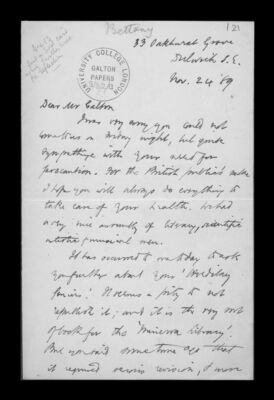 Bettany
121
33 Oakhurst Grove
Dulwich S.E.
Nov. 24 '89
UNIVERSITY COLLEGE LONDON
GALTON
PAPERS
Dear Mr Galton
I was very sorry you could not
come to us on Friday night, but quite
sympathise with your need for
precaution. For the British public's sake
I hope you will always do everything to
take care of your health. We had
a very nice assembly of literary, scientific
men.
It has occurred to me today to ask
you further about your 'Hereditary
Genius'. It seems a pity to not
republish it; and it is the very sort
of book for the 'Minerva Library'.
But you said some time ago that
it required revision, &